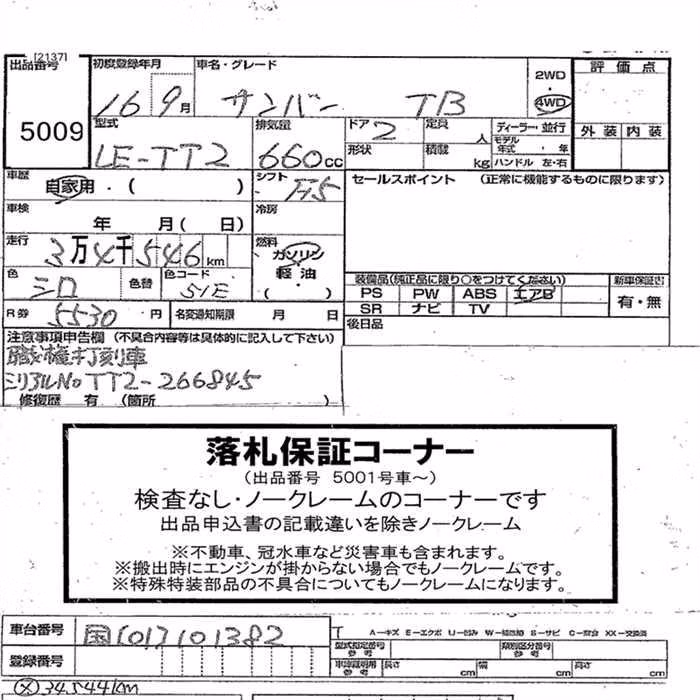 [2137]
出品番号 5009
初度登録年月 16 9月
車名・グレード サンバー TB
2WD ・ 4WD
評価点
型式 LE-TT2
排気量 660cc
ドア 2
形状
定員 人
積載 kg
ディーラー・並行
モデル年式 ・ 年
ハンドル 左・右
外装 内装
車歴 自家用 ・( )
シフト F5
セールスポイント (正常に機能するものに限ります)
車検 年 月( 日)
冷房
走行 3万4千546km
燃料 ガソリン
軽油
・( )
色 シロ 色替 色コード 51E
装備品(純正品に限り○をつけてください)
新車保証書 有・無
PS PW ABS エアB
SR ナビ TV
R券 5530円 名変通知期限 月 日
後日品
注意事項申告欄(不具合内容等は具体的に記入して下さい)
職権打刻車
シリアルNo TT2-266845
修復歴 有 (箇所 )
落札保証コーナー
(出品番号 5001号車~)
検査なし・ノークレームのコーナーです
出品申込書の記載違いを除きノークレーム
※不動車、冠水車など災害車も含まれます。
※搬出時にエンジンが掛からない場合でもノークレームです。
※特殊特装部品の不具合についてもノークレームになります。
車台番号 国[01]101382
T A-キズ E-エクボ U-凹み W-補修跡 S-サビ C-腐食 XX-交換済
型式指定番号 参考 類別区分番号 参考
登録番号
車庫証明用 参考 長さ cm 幅 cm 高さ cm
ⓧ34,544km